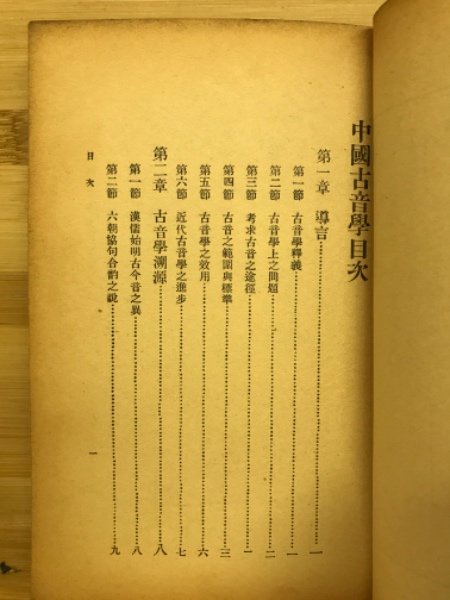 中國古音學目次
第一章 導言……一
第一節 古音學釋義……一
第二節 古音學上之問題……二
第三節 考求古音之途徑……
第四節 古音之範圍與標準……三
第五節 古音學之效用……六
第六節 近代古音學之進步……七
第二章 古音學溯源……八
第一節 漢儒始明古今音之異……八
第二節 六朝協句合韵之說……九
目次
一